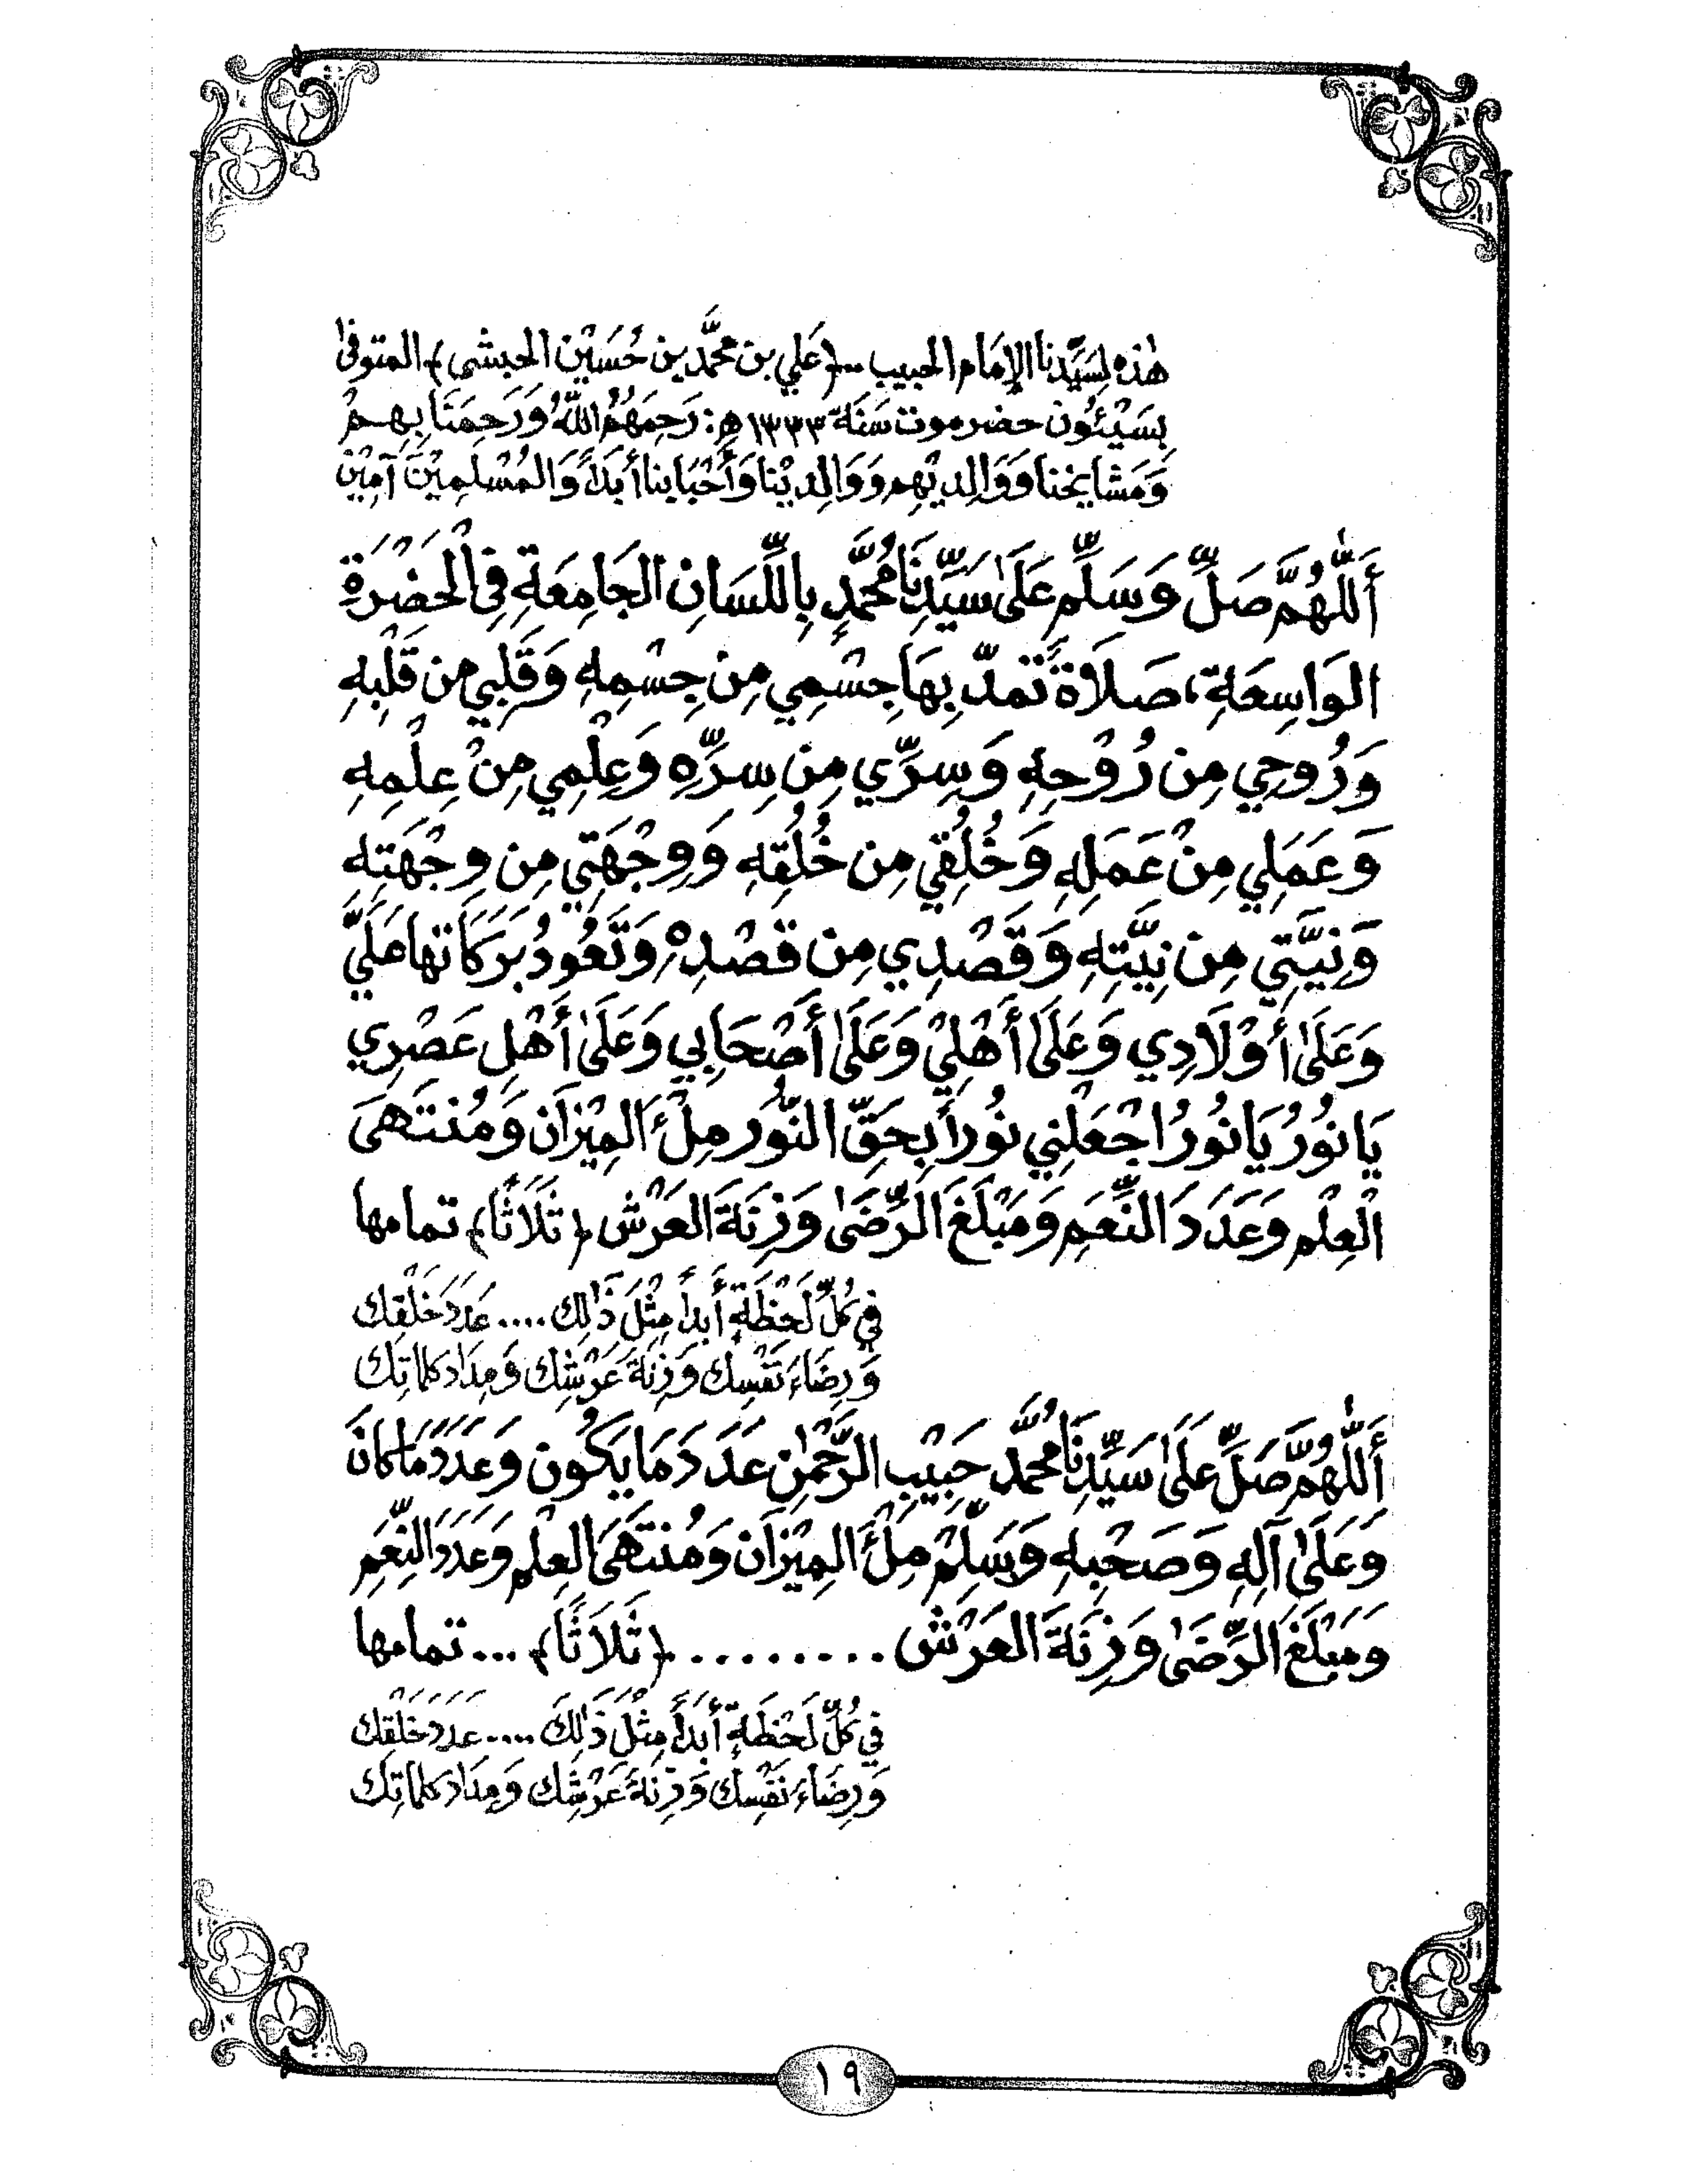 هٰذِهِ لِسَيِّدِنَا الإِمَام الحبيب ..﴿عَلِي بن محَمَّد بن حُسَيْن الحبشي﴾ المتوفىٰ
بسَيْئُون حضرموت سَنَة ١٣٣٣ هـ: رَحِمَهُمُ اللّٰهُ وَرَحِمَنَا بِهِمْ
وَمَشَايخنا وَوَالِدِيْهِم وَوَالِدِيْنَا وَأَحْبَابنا أبَدَاً وَالمُسْلِمِيْنَ آمِيْن
أَللّٰهُمَّ صَلِّ وَسَلِّم عَلَىٰ سَيِّدِنَا مُحَمَّدٍ بِاللِّسَانِ الجَامِعَةِ فِي الْحَضْرَةِ
الوَاسِعَةِ، صَلَاةً تمدّ بِهَا جِسْمِي مِن جِسْمِهِ وَقَلْبِي مِن قَلْبِهِ
وَرُوحِي مِن رُوْحِهِ وَسِرِّي مِن سِرِّهِ وَعِلْمِي مِنْ عِلْمِهِ
وَعَمَلِي مِنْ عَمَلِهِ وَخُلُقِي مِن خُلُقِهِ وَوِجْهَتِي مِن وِجْهَتِهِ
وَنِيَّتِي مِن نِيَّتِهِ وَقَصْدِي مِن قَصْدِهْ وَتَعُودُ بَرَكَاتها عَلَيَّ
وَعَلَىٰ أَوْلَادِي وَعَلَىٰ أَهْلِيْ وَعَلَىٰ أَصْحَابِي وَعَلَىٰ أَهْلِ عَصْرِي
يَا نُوْرُ يَا نُوْرُ اجْعَلْنِي نُوْراً بِحَقِّ النُّوْر مِلْءَ المِيْزَان وَمُنتَهَى
الْعِلْم وَعَدَدَ النِّعَمِ وَمَبْلَغَ الرِّضَىٰ وَزِنَةَ العَرْش ﴿ثَلَاثًا﴾ تمامها
فِي كُلِّ لَحْظَةٍ أَبداً مِثْلَ ذَٰلِك .... عَدَدَ خَلْقِك
وَرِضَاءَ نَفْسِك وَزِنَةَ عَرْشِك وَمِدَادَ كلماتِك
أَللّٰهُمَّ صَلِّ عَلَىٰ سَيِّدِنَا مُحَمَّد حَبِيْبِ الرَّحْمٰنِ عَدَدَ مَا يَكُون وَعَدَدَ مَا كَانَ
وَعَلَىٰ آلِهِ وَصَحْبِهِ وَسَلِّمْ مِلْءَ المِيْزَان وَمُنتَهَى العِلْم وَعَدَدَ النِّعَمِ
وَمَبْلَغَ الرِّضَىٰ وَزِنَةَ العَرْش ......... ﴿ثَلَاثًا﴾ ... تمامها
فِي كُلِّ لَحْظَةٍ أَبَدَاً مِثْلَ ذَٰلِكَ .... عَدَدَ خَلْقِك
وَرِضَاءَ نَفْسِك وَزِنَةَ عَرْشِك وَمِدَادَ كلماتِك
١٩